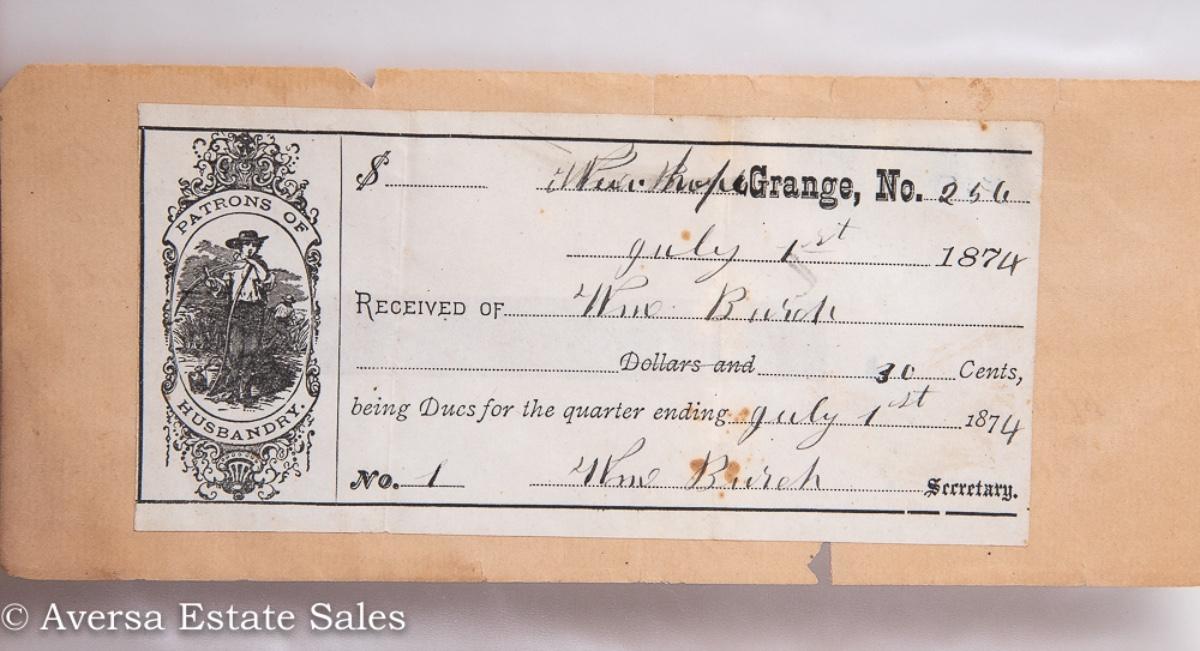 PATRONS OF
HUSBANDRY.
$ Grange, No. 256
July 1st 1874
RECEIVED OF Wm Burch
Dollars and 30 Cents,
being Dues for the quarter ending July 1st 1874
No. 1 Wm Burch Secretary.
© Aversa Estate Sales